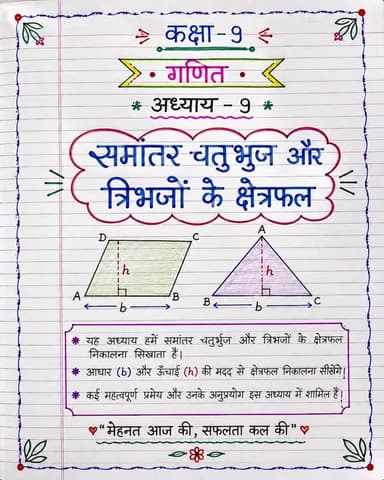 कक्षा - 9
• गणित •
* अध्याय - 9 *
समांतर चतुभुज और
त्रिभजों के क्षेत्रफल
D C
h
A B
b
A
h
B C
b
* यह अध्याय हमें समांतर चतुर्भुज और त्रिभजों के क्षेत्रफल
निकालना सिखाता है।
* आधार (b) और ऊँचाई (h) की मदद से क्षेत्रफल निकालना सीखेंगे।
* कई महत्वपूर्ण प्रमेय और उनके अनुप्रयोग इस अध्याय में शामिल हैं।
♥ "मेहनत आज की, सफलता कल की" ♥